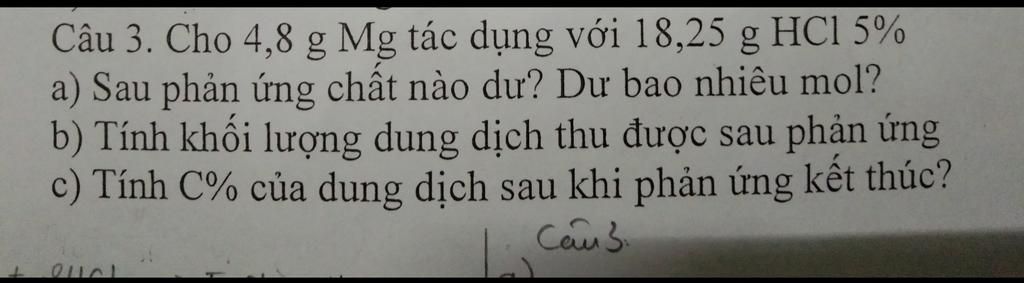 Câu 3. Cho 4,8 g Mg tác dụng với 18,25 g HCl 5%
a) Sau phản ứng chất nào dư? Dư bao nhiêu mol?
b) Tính khối lượng dung dịch thu được sau phản ứng
c) Tính C% của dung dịch sau khi phản ứng kết thúc?
Câu 3.
a)